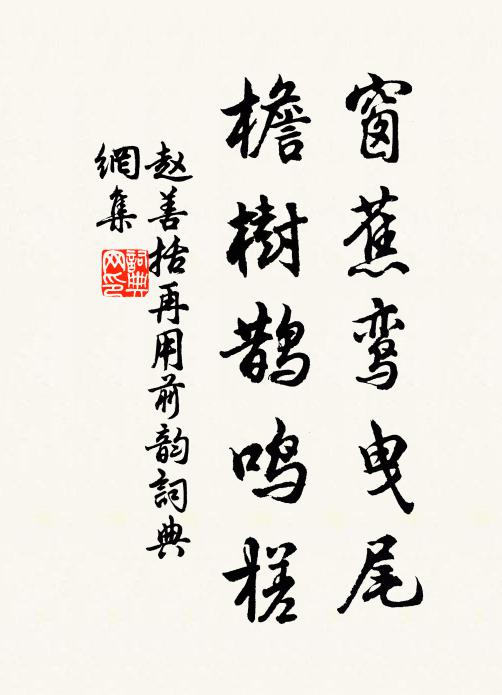 窗蕉鸾曳尾
檐樹鹊鸣槎
赵善括再用前韵詞典
網集
詞典
网印